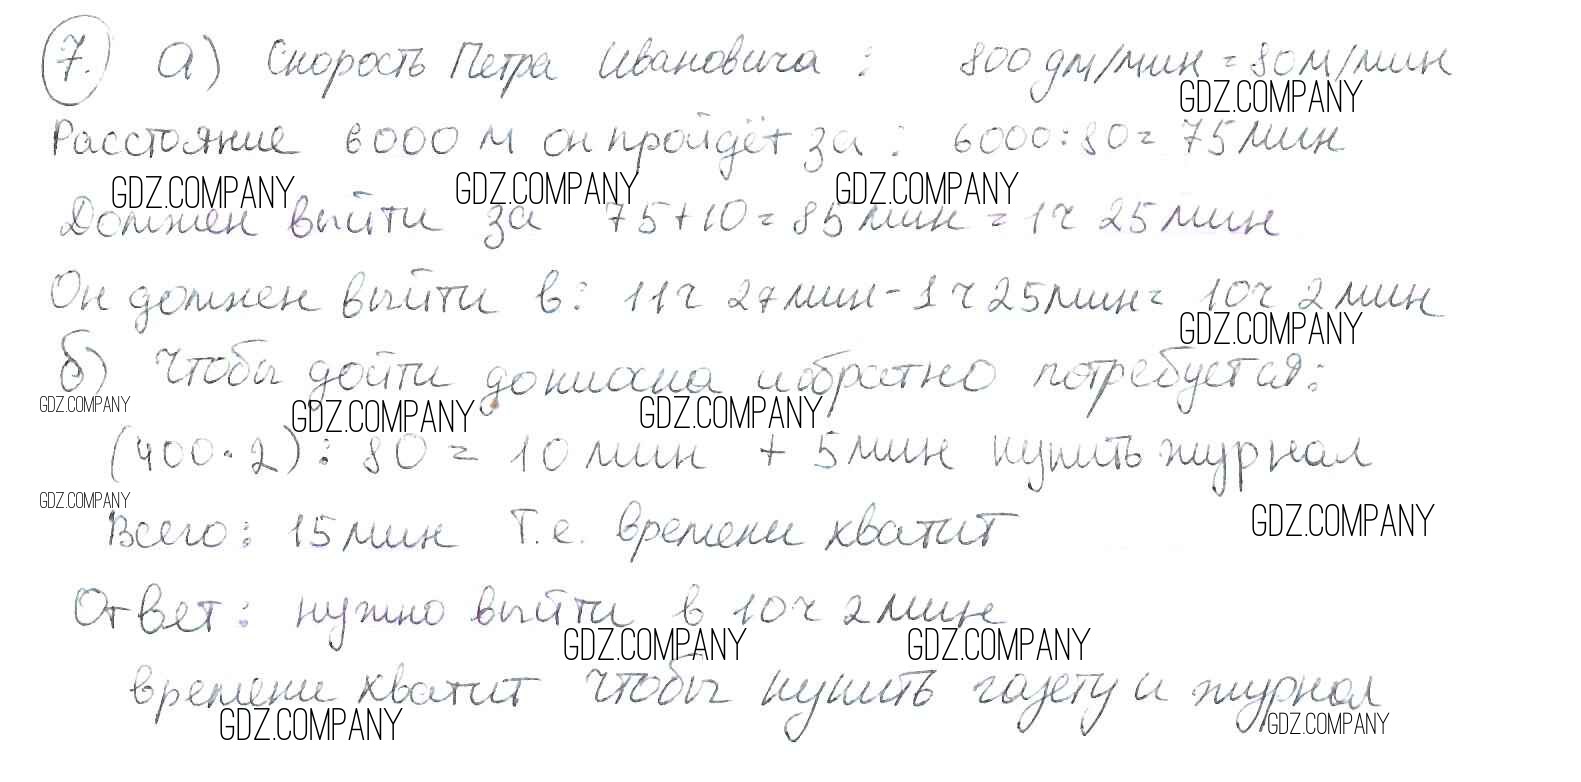 7. а) Скорость Петра Ивановича : 800 дм/мин = 80 м/мин
GDZ.COMPANY
Расстояние 6000 м он пройдёт за : 6000 : 80 = 75 мин
GDZ.COMPANY GDZ.COMPANY GDZ.COMPANY
Должен выйти за 75 + 10 = 85 мин = 1 ч 25 мин
Он должен выйти в: 11 ч 27 мин - 1 ч 25 мин = 10 ч 2 мин
GDZ.COMPANY
б) Чтобы дойти до киоска и обратно потребуется:
GDZ.COMPANY GDZ.COMPANY GDZ.COMPANY
(400 · 2) : 80 = 10 мин + 5 мин купить журнал
GDZ.COMPANY
Всего: 15 мин Т.е. времени хватит
GDZ.COMPANY
Ответ: нужно выйти в 10 ч 2 мин
GDZ.COMPANY GDZ.COMPANY
времени хватит чтобы купить газету и журнал
GDZ.COMPANY GDZ.COMPANY